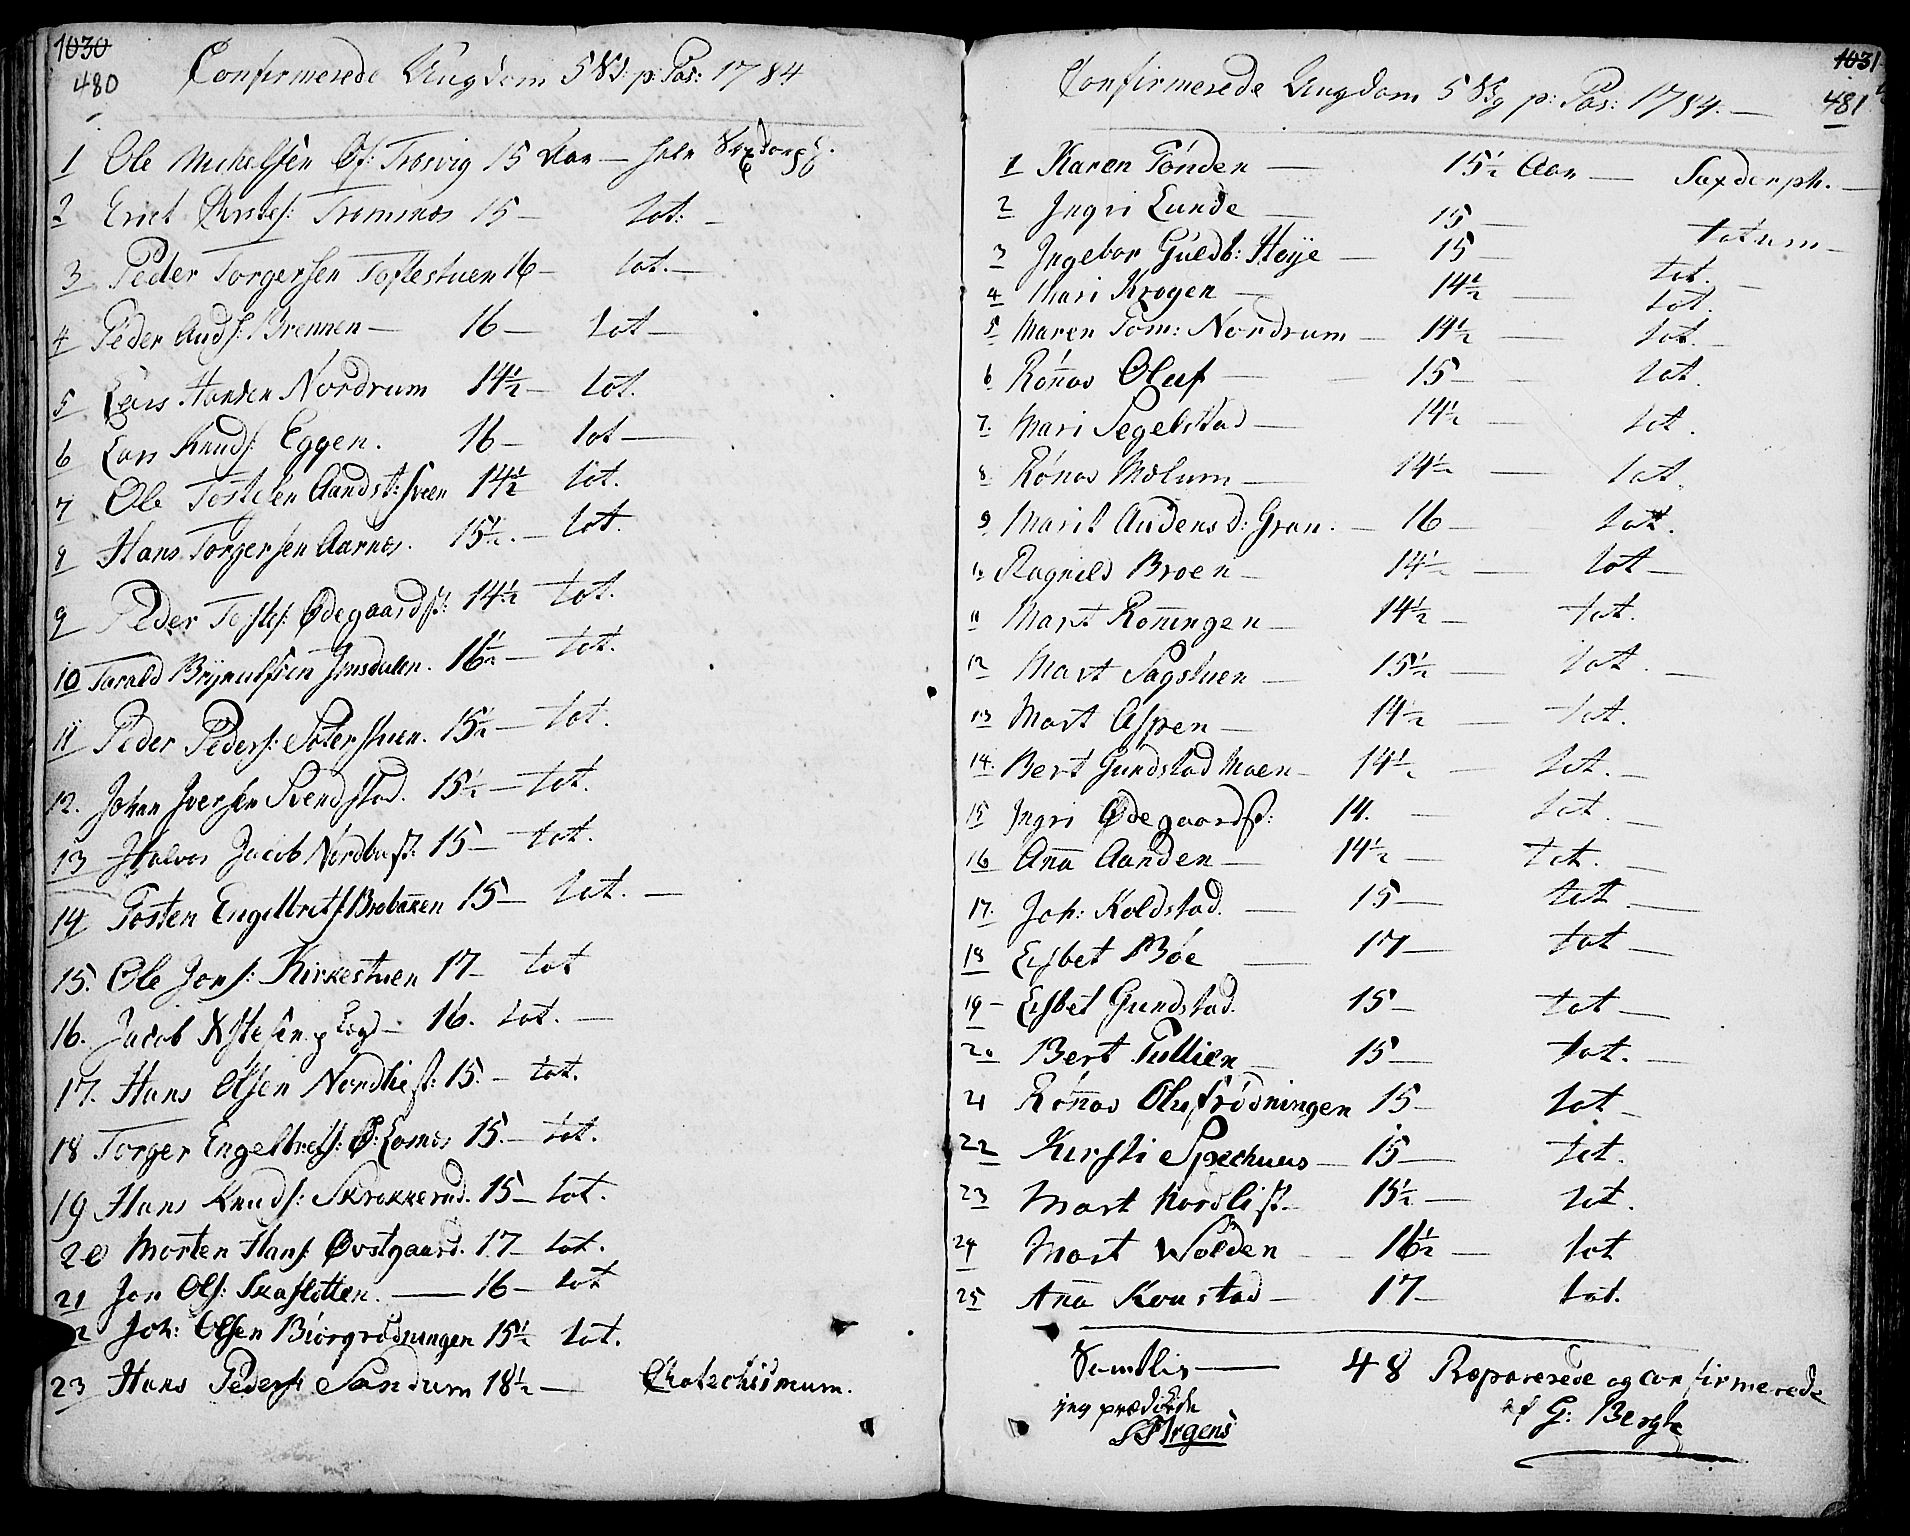 1030
480
Confirmerede Ungdom 5 S: p: Pas: 1784
1 Ole Michelsen Øf: Trosvig 15 Aar — heele
2 Erict Tromsnæs 15 — tot: —
3 Peder Torgersen Toftestuen 16 — tot. —
4 Peder Auds: Brennen — 16 — tot —
5 Lars Hansen Nordrum 14½ — tot.
6 Lars Knuds: Eggen. 16 — tot —
7 Ole Tostesen Aandst: Sveen 14½ tot.
8 Hans Torgersen Aarnes. 15½. — tot.
9 Peder Tostes: Ødegaardst: 14½ tot.
10 Tarald Brynulfsen Imsdalen. 16½ — tot.
11 Peder Peders: Soterstuen. 15½ — tot.
12. Johan Iversen Svendstad. 15½ — tot.
13 Halvor Jacob Nordbust: 15 — tot.
14 Tosten Engelbrets: Brobakken 15 — tot. —
15. Ole Jons: Kirkestuen 17 — tot
16. Jacob 16. tot. —
17. Hans Olsen Nordlist: 15. — tot.
18 Torger Engelbrets: Ø: Losnes 15. — tot.
19 Hans Knuds: Skrukkerud. 15 — tot.
20 Morten Hans: Øvstgaard. 17 — tot.
21 Jon Ols: Skaslotten. — 16 — tot
2 Joh: Olsen Biørgrødningen 15½ tot.
23 Hans Peders: Sandum 18½ — Chatechismum.
1031
481
Confirmerede Ungdom 5 p: Pas: 1784. —
1 Karen Tonden — 15½ Aar — Saxdorph. —
2 Ingri Lunde — 15 — totum —
3 Ingebor Guldb: Høye — 15 — tot. —
4 Mari Krogen — 14½ — tot.
5 Maren Tom: Nordrum — 14½ — tot. —
6 Rønnov Oluf — 15 — tot.
7. Mari Segelstad — 14½ — tot.
8 Rønov Mølum — 14½ — tot.
9 Marit Audensd: Gran. — 16 — tot.
10 Ragnild Broen — 14½ — tot —
11 Mart Ronningen — 14½ — tot.
12 Mart Sagstuen — 15½ — tot. —
13 Mart Aspen — 14½ — tot.
14. Bert Gundstad Moen — 14½ — tot. —
15 Ingri Ødegaardst: 14. — tot. —
16 Anna Aanden — 14½ — tot. —
17. Joh: Koldstad. — 15 — tot —
18 Elsbet Bøe — 17 — tot —
19 — Elsbet Gundstad. 15 — tot —
20 Bert Tullien — 15 — tot. —
21 Rønnov Olufsrødningen 15 — tot —
22 Kersti Spechuus — 15 — tot.
23 Mart Nordlist — 15½ — tot.
24 Mart Wolden — 16½ — tot
25 Anna Konstad — 17 — tot.
Samtlig — 48 Ræparerede og confirmerede
jeg prædikede af G: Bergh
Irgens